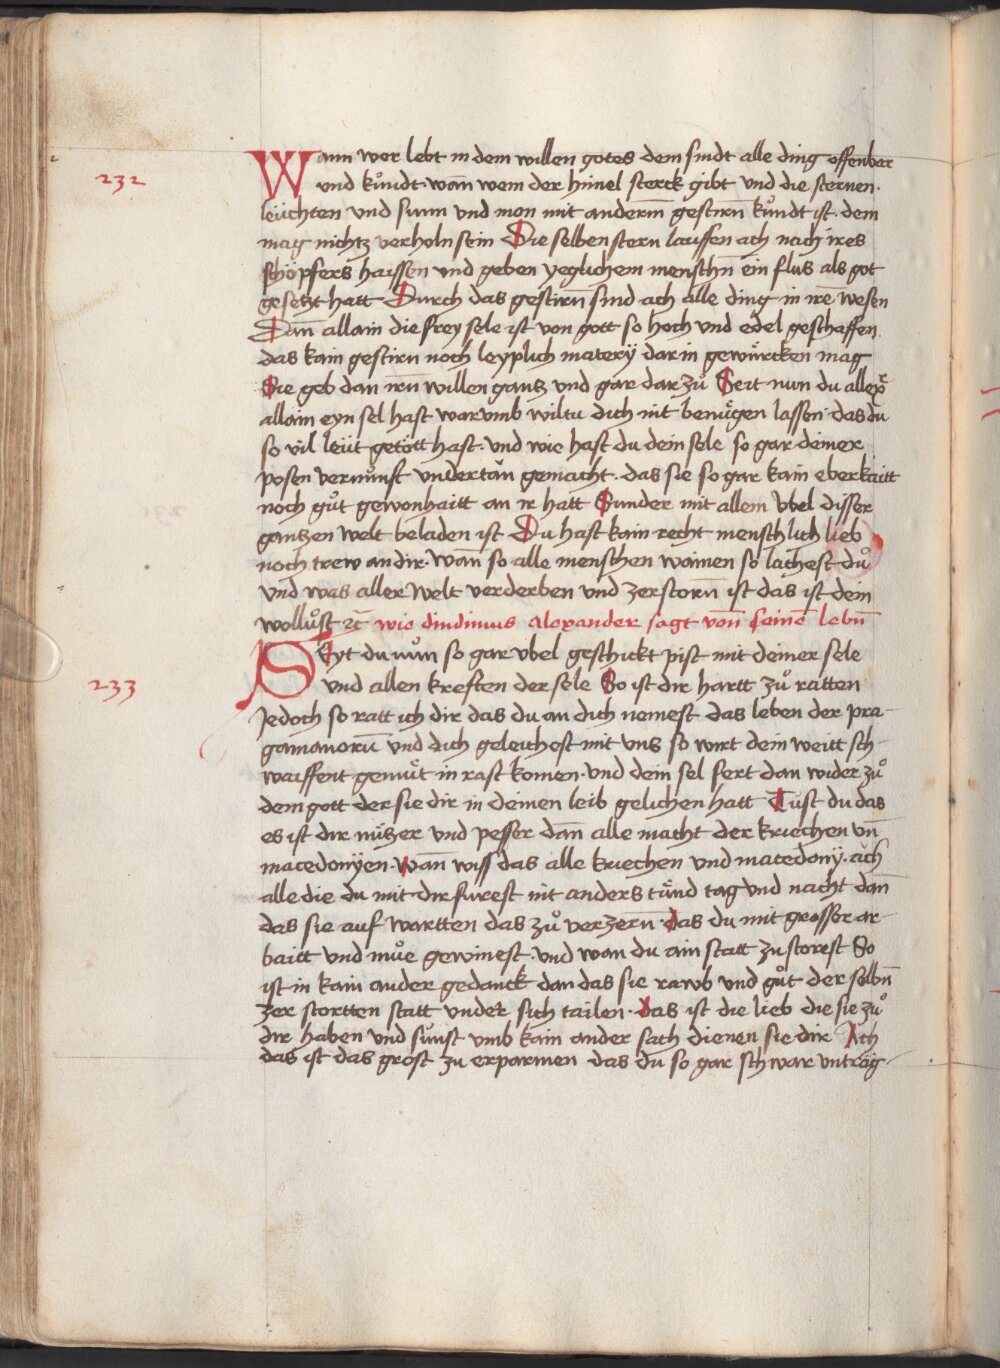 Wann wer lebt in dem willen gotes dem sindt alle ding offenbar
232
und kůndt · wan̄ wem der himel sterck gibt und die sternen ·
leüchten und sunn und mon mit anderm̄ gestirn̄ kůndt ist · dem
mag nichtz verholn sein Die selben stern lauffen ach nach ires
schöpfers haissen und geben yeglichem menschn̄ ein flus als got
gesetzt hatt Durch das gestirn̄ sind ach alle ding in irē wesen
Dan̄ allain die frey sele ist von gott so hoch und edel geschaffen
das kain gestirn noch leyplich matery̋ dar in gewürcken mag
Sie geb dan irn̄ willen gantz und gar dar zů Seit nun du
allain eyn sel hast warumb wiltu dich nit benügen lassen · das du
so vil leüt getött hast · und wie hast du dein sele so gar deiner
posen vernunft undertan gemacht · das sie so gar kain eberkaitt
noch gůt gewonhaitt an ir hatt Sunder mit allem ubel disser
gantzen welt beladen ist Du hast kain recht menschlich lieb
noch trew an dir · wan̄ so alle menschen wainen so lachest du
und was aller welt verderben und zerstorn̄ ist das ist dein
wollůst ⁊c̄ wie dindimus alexander sagt von̄ seinē lebn̄
Seyt du nun so gar ubel geschickt pist mit deiner sele
233
und allen kreften der sele So ist dir hartt zů ratten
Jedoch so ratt ich dir das du an dich nemest das leben der pra-
gamanorū und dich geleichest mit uns so wirt dein weitt sch-
waiffent gemüt in rast komen · und dein sel fert dan wider zů
dem gott der sie dir in deinen leib gelichen hatt Tüst du das
es ist dir nützer und pesser dan̄ alle macht der kriechen un̄
macedonyen · wan̄ wiss das alle kriechen und macedony · ach
alle die du mit dir fürest nit anders tünd tag und nacht dan̄
das sie auf wartten das zů verzern̄ das du mit grosser ar-
baitt und müe gewinest · und wan du ain statt zustorest So
ist in kain ander gedanck dan das sie rawb und gůt der selbn̄
zer stortten statt under sich tailen · das ist die lieb die sie zů
dir haben und sunst umb kain ander sach dienen sie dir Ach
das ist das gröst zu erparmen das du so gar schwar unträg-